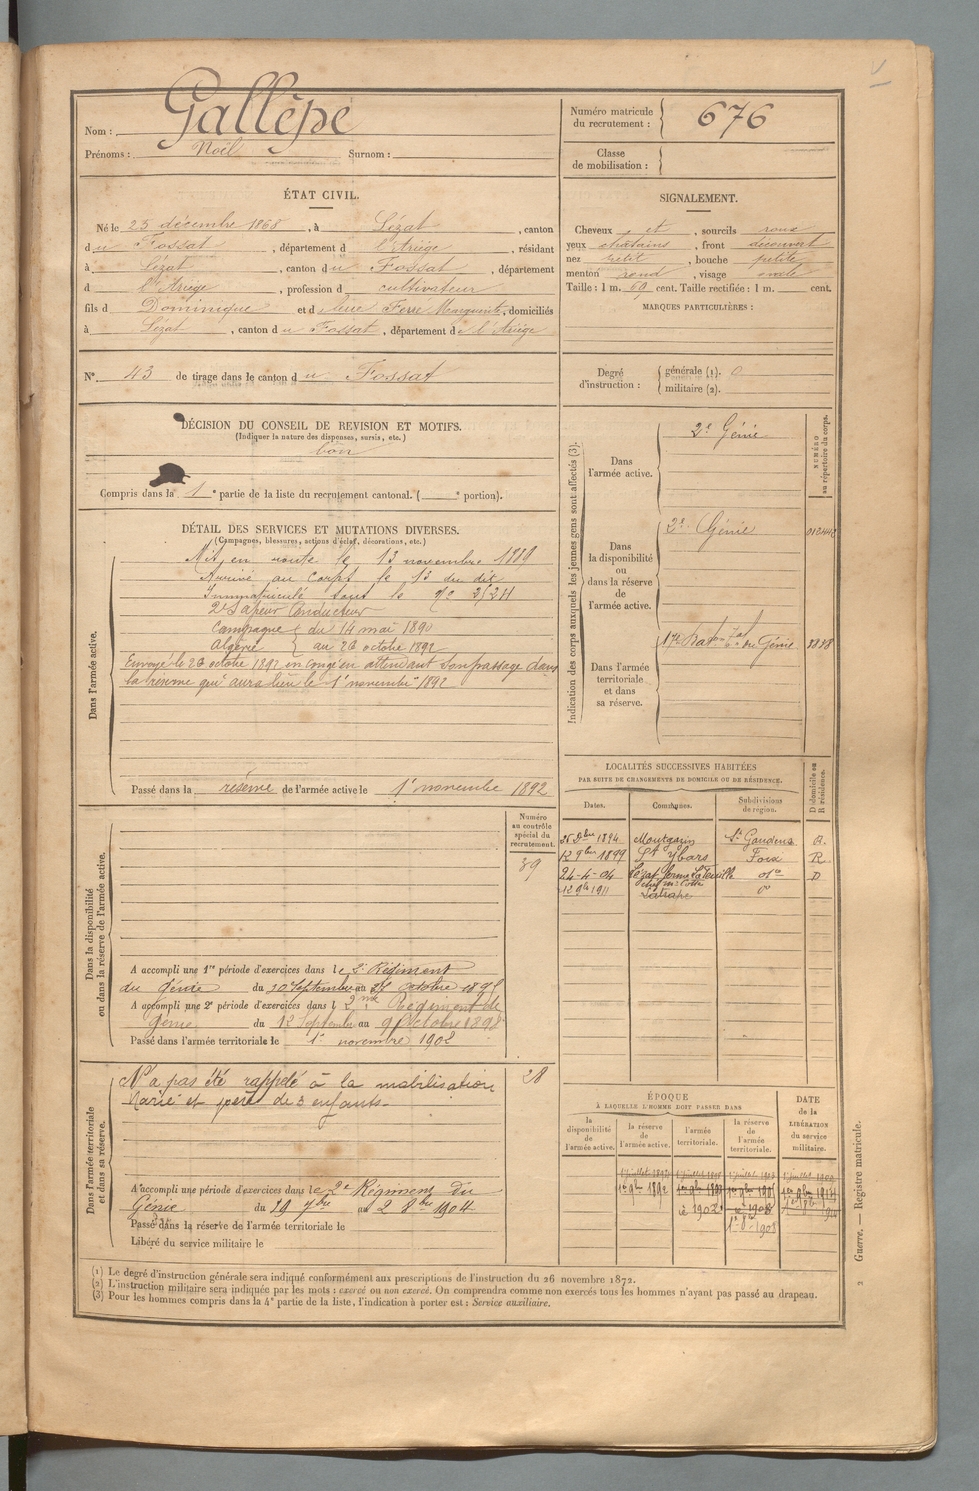 Nom : Gallèpe
Prénoms : Noël Surnom :
Numéro matricule du recrutement : 676
Classe de mobilisation :
ÉTAT CIVIL.
Né le 25 décembre 1868, à Lézat, canton
du Fossat, département d l'Ariège, résidant
à Lézat, canton du Fossat, département
d l'Ariège, profession d cultivateur
fils d Dominique et d Marguerite, domiciliés
à Lézat, canton du Fossat, département de l'Ariège
SIGNALEMENT.
Cheveux et, sourcils roux
yeux chatains, front découvert
nez petit, bouche petite
menton rond, visage ovale
Taille : 1 m. 69 cent. Taille rectifiée : 1 m. cent.
MARQUES PARTICULIÈRES :
N° 43 de tirage dans le canton du Fossat
Degré d'instruction : générale (1). 0
militaire (2).
DÉCISION DU CONSEIL DE REVISION ET MOTIFS.
(Indiquer la nature des dispenses, sursis, etc.)
bon
Compris dans la 1e partie de la liste du recrutement cantonal. ( e portion).
DÉTAIL DES SERVICES ET MUTATIONS DIVERSES.
(Campagnes, blessures, actions d'éclat, décorations, etc.)
Dans l'armée active.
Mit en route le 13 novembre 1889
Arrivé au corps le 13 du dit
Immatriculé sous le n°
2e Sapeur Conducteur
Campagne du 14 mai 1890
Algérie au 26 octobre 1892
Envoyé le 26 octobre 1892 en congé en attendant son passage dans
la réserve qui aura lieu le 1er novembre 1892
Passé dans la réserve de l'armée active le 1er novembre 1892
Indication des corps auxquels les jeunes gens sont affectés (3).
NUMÉRO au répertoire du corps.
Dans l'armée active.
2e Génie
Dans la disponibilité ou dans la réserve de l'armée active.
2e Génie
Dans l'armée territoriale et dans sa réserve.
17e Baton du Génie
LOCALITÉS SUCCESSIVES HABITÉES
PAR SUITE DE CHANGEMENTS DE DOMICILE OU DE RÉSIDENCE.
Dates. Communes. Subdivisions de région. D domicile ou R résidence.
1894 Montgazin St Gaudens R.
12 9bre 1899 St Ybars Foix R
24-4-04 Lézat do D
12 9bre 1911 Latrape do
Dans la disponibilité ou dans la réserve de l'armée active.
Numéro au contrôle spécial du recrutement.
39
A accompli une 1re période d'exercices dans le 2e Régiment
du génie du 30 septembre au 27 octobre 1895
A accompli une 2e période d'exercices dans l 2me Régiment de
Génie du 12 Septembre au 9 Octobre 1898
Passé dans l'armée territoriale le 1er novembre 1902
Dans l'armée territoriale et dans sa réserve.
28
N'a pas été rappelé à la mobilisation
Marié et père de 3 enfants.
A accompli une période d'exercices dans le 2e Régiment du
Génie du 19 7bre au 2 8bre 1904
Passé dans la réserve de l'armée territoriale le
Libéré du service militaire le
ÉPOQUE
À LAQUELLE L'HOMME DOIT PASSER DANS
la disponibilité de l'armée active. la réserve de l'armée active. l'armée territoriale. la réserve de l'armée territoriale.
DATE de la LIBÉRATION du service militaire.
1er 9bre 1892
1902 1908
(1) Le degré d'instruction générale sera indiqué conformément aux prescriptions de l'instruction du 26 novembre 1872.
(2) L'instruction militaire sera indiquée par les mots : exercé ou non exercé. On comprendra comme non exercés tous les hommes n'ayant pas passé au drapeau.
(3) Pour les hommes compris dans la 4e partie de la liste, l'indication à porter est : Service auxiliaire.
2 Guerre. — Registre matricule.